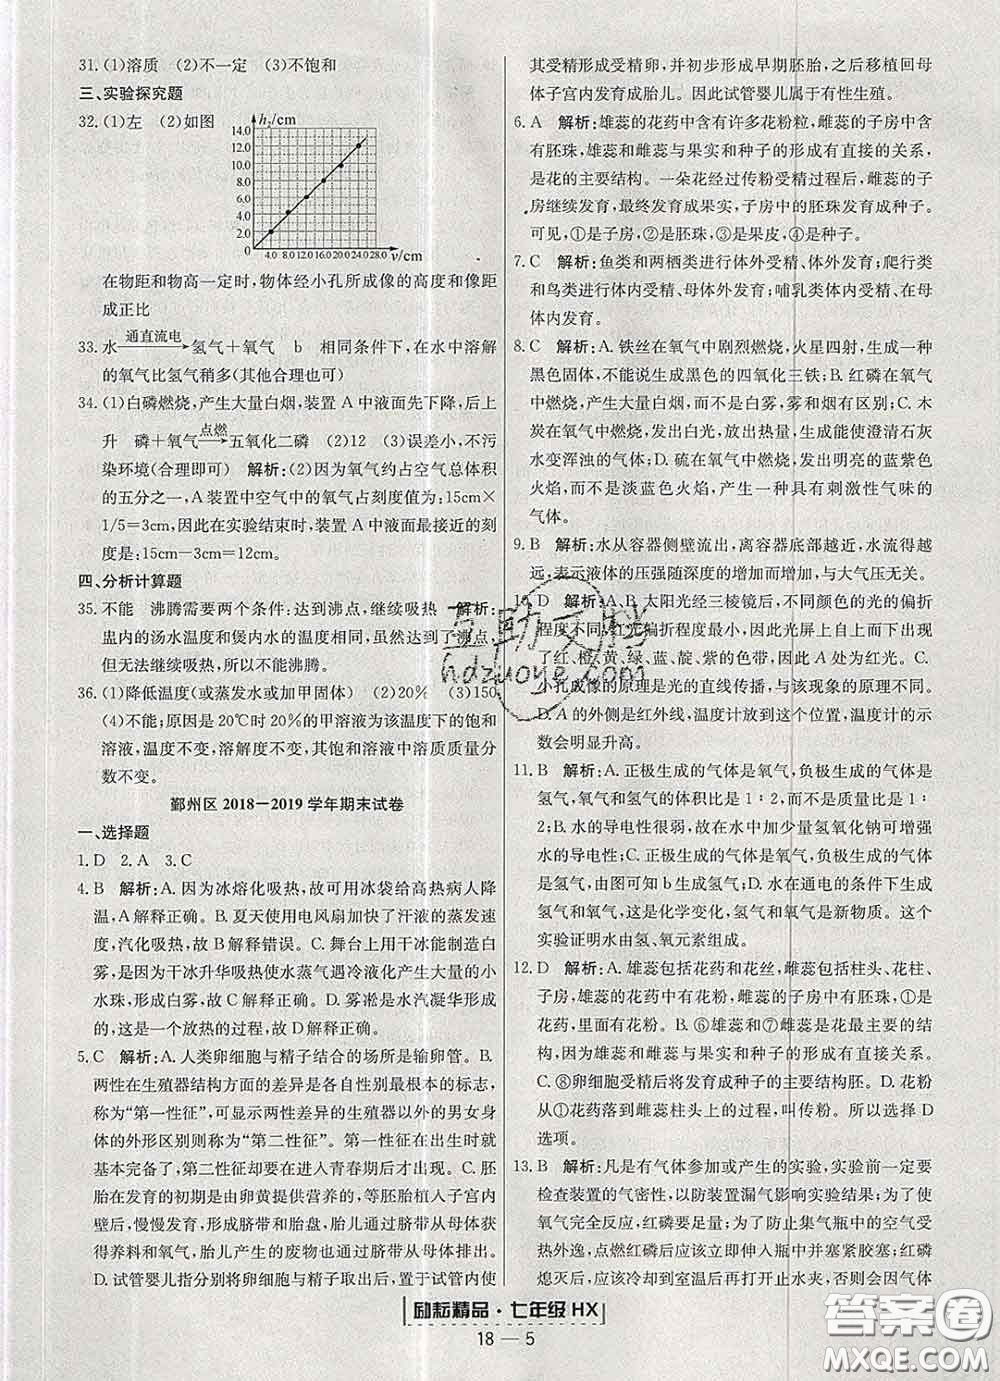 31.(1)溶质　(2)不一定　(3)不饱和
三、实验探究题
32.(1)左　(2)如图
h₂/cm
14.0
12.0
10.0
8.0
6.0
4.0
2.0
0
4.0 8.0 12.0 16.0 20.0 24.0 28.0 v/cm
在物距和物高一定时,物体经小孔所成像的高度和像距
成正比
33.水 通直流电→ 氢气+氧气　b　相同条件下,在水中溶解
的氧气比氢气稍多(其他合理也可)
34.(1)白磷燃烧,产生大量白烟,装置 A 中液面先下降,后上
升　磷+氧气 点燃→ 五氧化二磷　(2)12　(3)误差小,不污
染环境(合理即可)　解析:(2)因为氧气约占空气总体积
的五分之一,A 装置中空气中的氧气占刻度值为:15cm×
1/5=3cm,因此在实验结束时,装置 A 中液面最接近的刻
度是:15cm-3cm=12cm。
四、分析计算题
35.不能　沸腾需要两个条件:达到沸点,继续吸热　解析:
盅内的汤水温度和煲内水的温度相同,虽然达到了沸点,
但无法继续吸热,所以不能沸腾。
36.(1)降低温度(或蒸发水或加甲固体)　(2)20%　(3)150
(4)不能;原因是20℃时20%的甲溶液为该温度下的饱和
溶液,温度不变,溶解度不变,其饱和溶液中溶质质量分
数不变。
鄞州区 2018—2019 学年期末试卷
一、选择题
1.D　2.A　3.C
4.B　解析:A.因为冰熔化吸热,故可用冰袋给高热病人降
温,A解释正确。B.夏天使用电风扇加快了汗液的蒸发速
度,汽化吸热,故 B 解释错误。C.舞台上用干冰能制造白
雾,是由于干冰升华吸热使水蒸气遇冷液化产生大量的小
水珠,形成白雾,故 C 解释正确。D.雾凇是水汽凝华形成
的,这是一个放热的过程,故 D 解释正确。
5.C　解析:A.人类卵细胞与精子结合的场所是输卵管。B.
两性在生殖器结构方面的差异是各自性别最根本的标志,
称为“第一性征”,可显示两性差异的生殖器以外的男女身
体的外形区别则称为“第二性征”。第一性征在出生时就
基本完备了,第二性征却要在进入青春期后才出现。C.胚
胎在发育的初期是由卵黄提供营养的,等胚胎植入子宫内
壁后,慢慢发育,形成脐带和胎盘,从此就通过脐带从母体获得
养料和氧气,胎儿产生的废物也通过脐带从母体排出。
D.试管婴儿指分别将卵细胞与精子取出后,置于试管内使
其受精形成受精卵,并初步形成早期胚胎,之后移植回母
体子宫内发育成胎儿。因此试管婴儿属于有性生殖。
6.A　解析:雄蕊的花药中含有许多花粉粒,雌蕊的子房中含
有胚珠,雄蕊和雌蕊与果实和种子的形成有直接的关系,
是花的主要结构。一朵花经过传粉受精过程后,雌蕊的子
房继续发育,最终发育成果实,子房中的胚珠发育成种子。
可见,①是子房,②是胚珠,③是果皮,④是种子。
7.C　解析:鱼类和两栖类进行体外受精、体外发育;爬行类
和鸟类进行体内受精、母体外发育;哺乳类体内受精、在母
体内发育。
8.C　解析:A.铁丝在氧气中剧烈燃烧,火星四射,生成一种
黑色固体,不能说生成黑色的四氧化三铁;B.红磷在氧气
中燃烧,产生大量白烟,而不是白雾,雾和烟有区别;C.木
炭在氧气中燃烧,发出白光,放出热量,生成能使澄清石灰
水变浑浊的气体;D.硫在氧气中燃烧,发出明亮的蓝紫色
火焰,而不是淡蓝色火焰,产生一种具有刺激性气味的
气体。
9.B　解析:水从容器侧壁流出,离容器底部越近,水流得越
远,表示液体的压强随深度的增加而增加,与大气压无关。
10.D　解析:A.B.太阳光经三棱镜后,不同颜色的光的偏折
程度不同,红光偏折程度最小,因此光屏上自上而下出现
了红、橙、黄、绿、蓝、靛、紫的色带,因此 A 处为红光。C.
小孔成像的原理是光的直线传播,与该现象的原理不同。
D.A 的外侧是红外线,温度计放到这个位置,温度计的示
数会明显升高。
11.B　解析:A.正极生成的气体是氧气,负极生成的气体是
氢气,氧气和氢气的体积比是1∶2,而质量比不是1∶
2;B.水的导电性很弱,故在水中加少量氢氧化钠可增强
水的导电性;C.正极生成的气体是氧气,负极生成的气体
是氢气,由图可知 b 生成氢气;D.水在通电的条件下生成
氢气和氧气,这是化学变化,氢气和氧气是新物质。这个
实验证明水由氢、氧元素组成。
12.D　解析:A.雄蕊包括花药和花丝,雌蕊包括柱头、花柱、
子房,雄蕊的花药中有花粉,雌蕊的子房中有胚珠,①是
花药,里面有花粉。B.⑥雄蕊和⑦雌蕊是花最主要的结
构,因为雄蕊和雌蕊与果实和种子的形成有直接的关系。
C.⑧卵细胞受精后将发育成种子的主要结构胚。D.花粉
从①花药落到雌蕊柱头上的过程,叫传粉。所以选择 D
选项。
13.B　解析:凡是有气体参加或产生的实验,实验前一定要
检查装置的气密性,以防装置漏气影响实验结果;为了使
氧气完全反应,红磷要足量;为了防止集气瓶中的空气受
热膨胀逸出,点燃红磷后应该立即伸入瓶中并塞紧胶塞;红磷
熄灭后,必须冷却到室温后再打开止水夹,否则会因气体
互助文档
hdzuoye.com
励耘精品·七年级 HX
18 — 5
答案圈
MXQE.COM